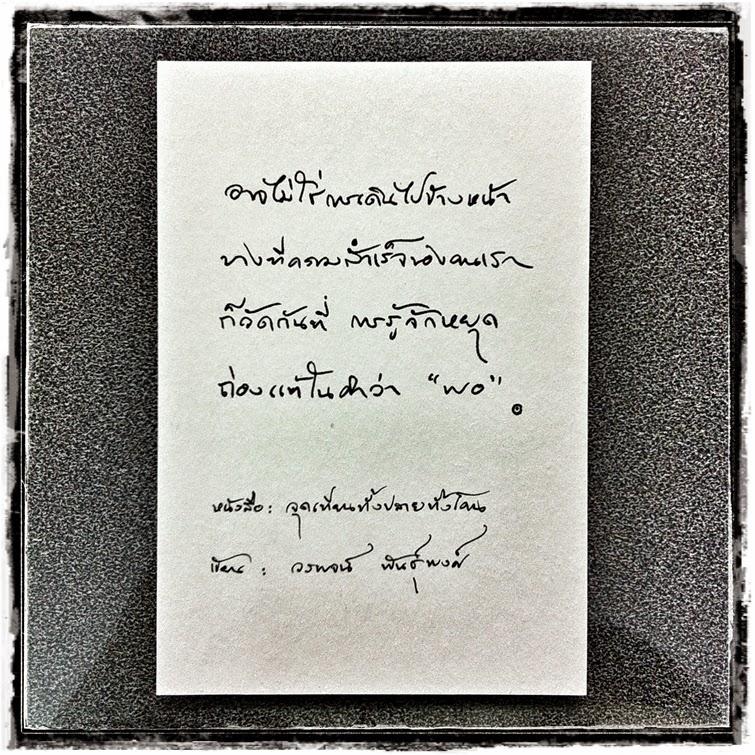 อาจไม่ใช่การเดินไปข้างหน้า
บางทีความสำเร็จของคนเรา
ก็วัดกันที่ การรู้จักหยุด
ถ่องแท้ในคำว่า "พอ"
หนังสือ: จุดเทียนทั้งปลายทั้งโคน
เขียน : วรพจน์ พันธุ์พงศ์